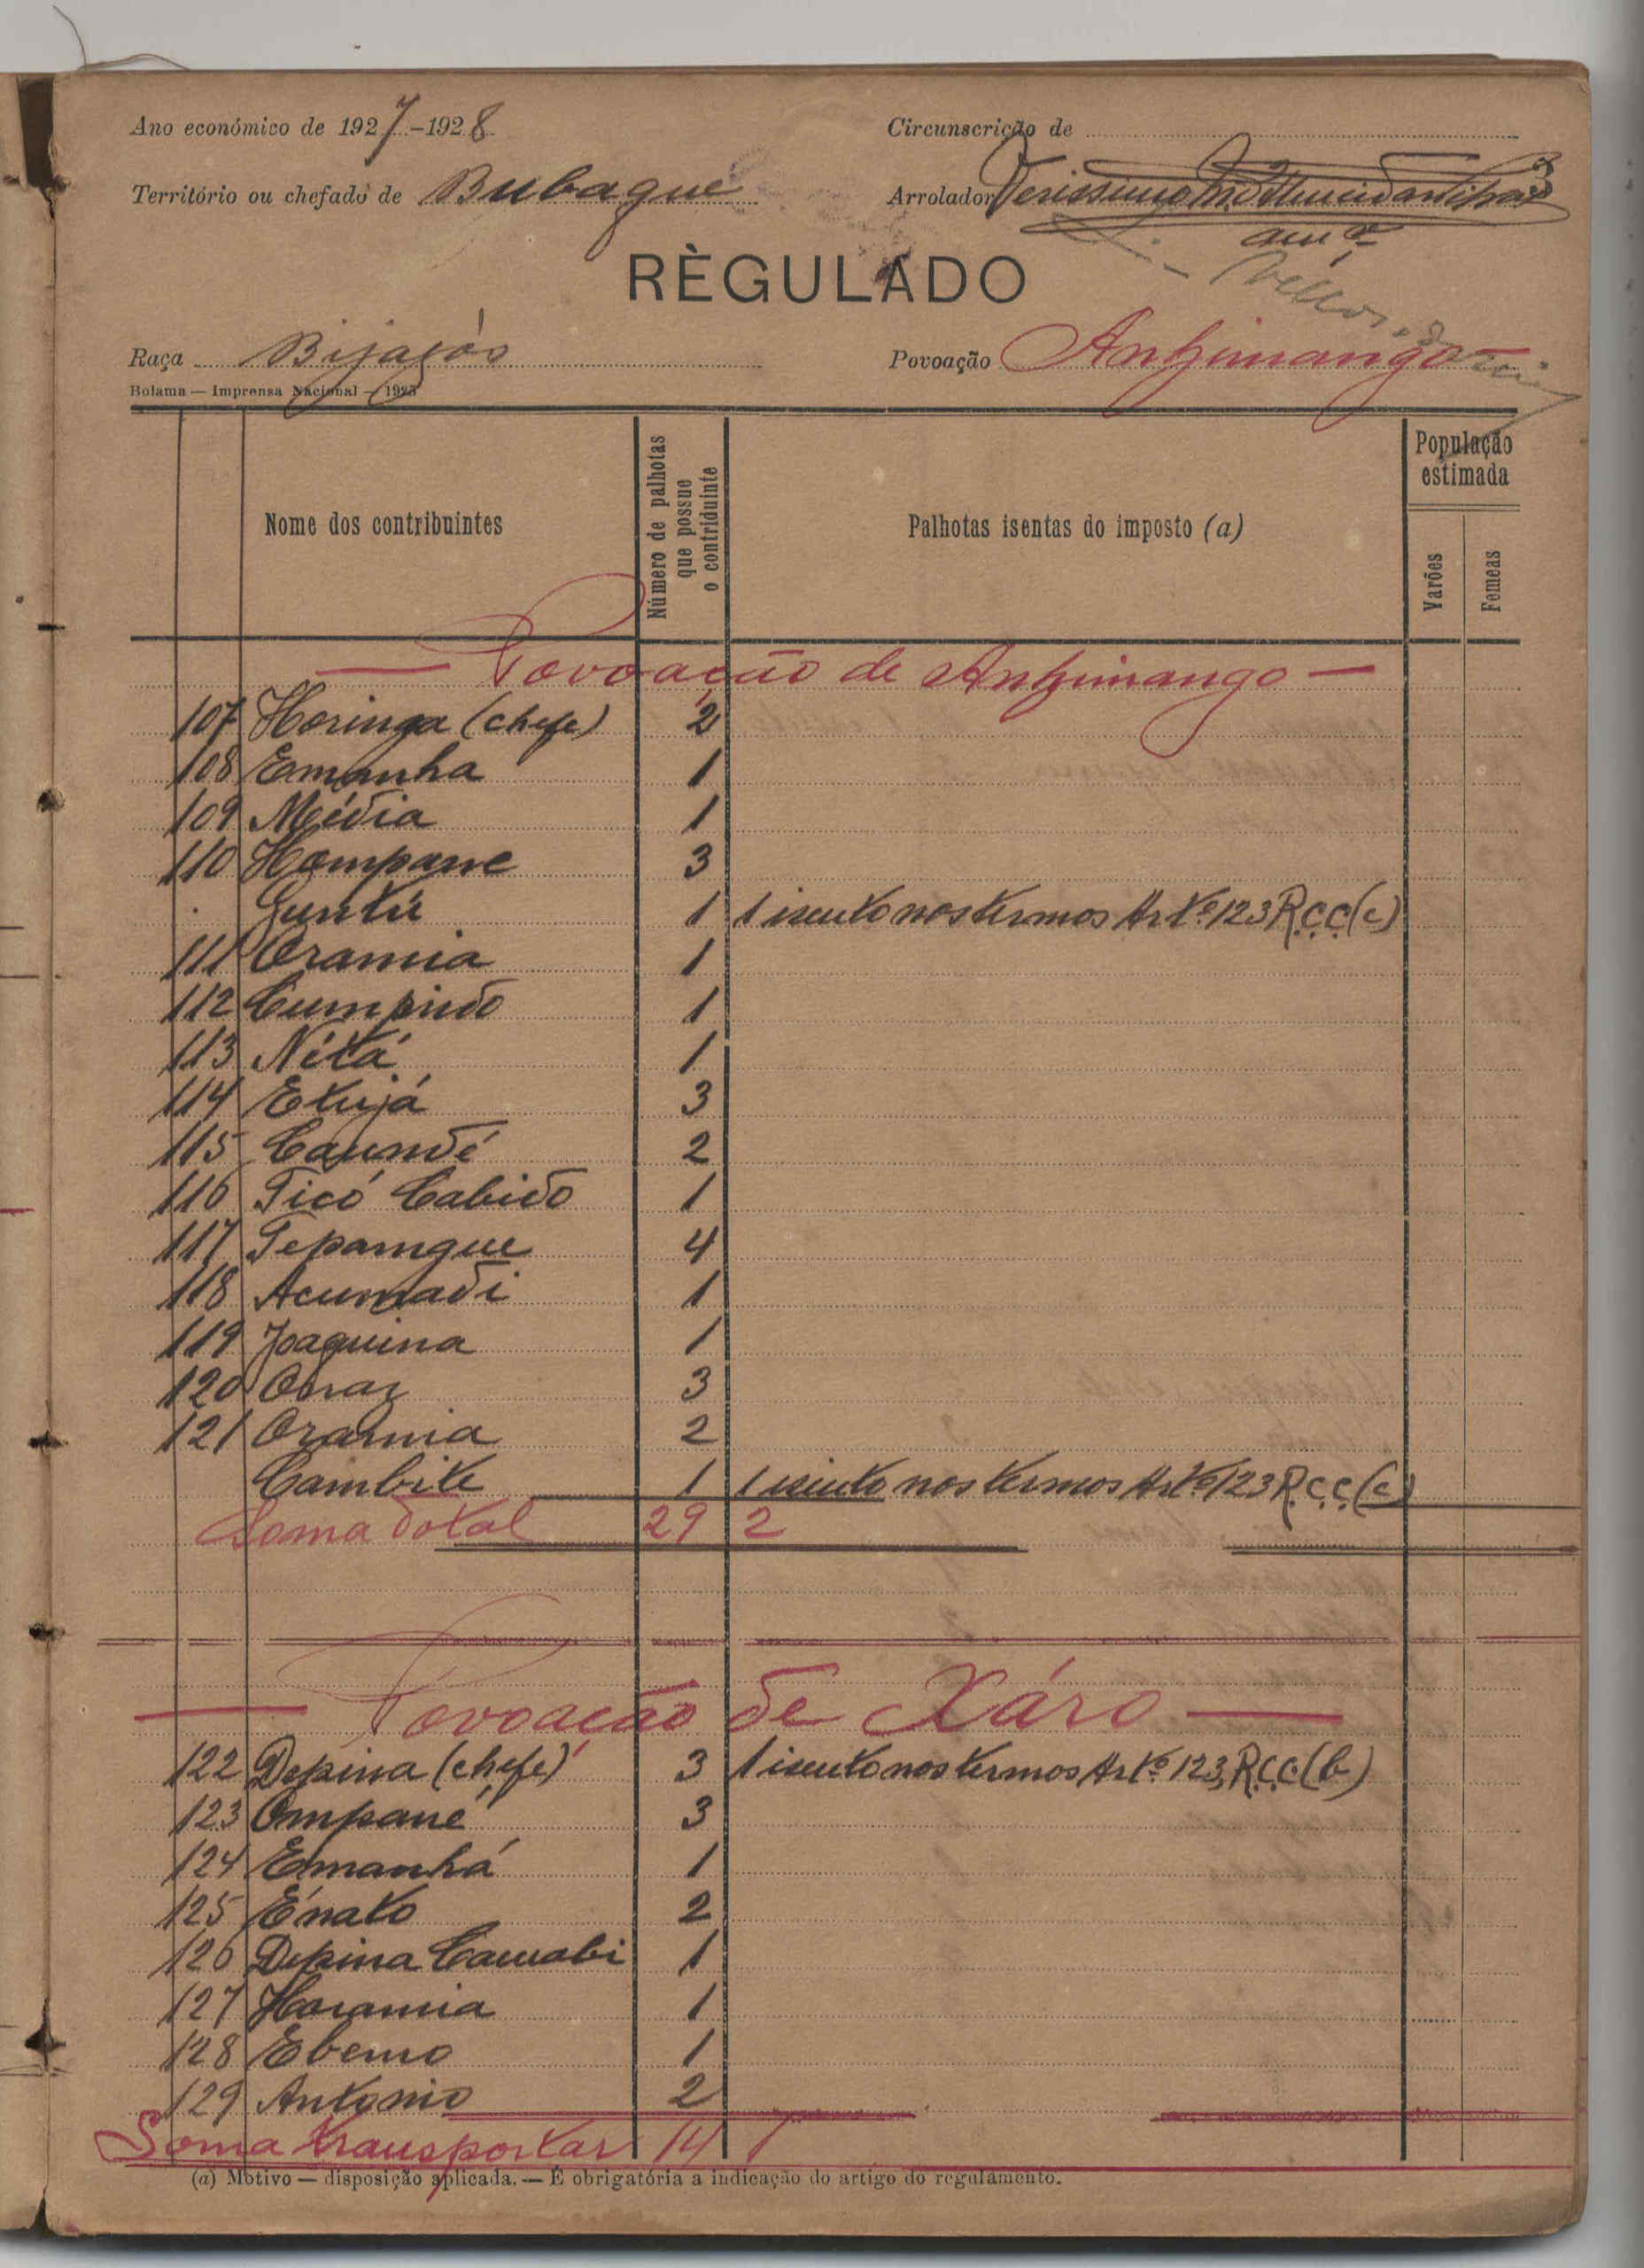 Ano económico de 1927-1928
Circunscrição de
Território ou chefado de Bubaque
Arrolador
RÈGULADO
Raça Bijagós
Povoação Ankimango
Bolama — Imprensa Nacional — 1925
Nome dos contribuintes
Número de palhotas que possue o contriduinte
Palhotas isentas do imposto (a)
População estimada
Varões
Femeas
— Povoação de Ankimango —
107 Horinga (chefe) 2
108 Emanha 1
109 Média 1
110 Hompane 3
Guntú 1 1 isento nos termos Artº 123 R.C.C. (c)
111 Oramia 1
112 Cumpido 1
113 Nétá 1
114 Etujá 3
115 Caundé 2
116 Ticó Cabido 1
117 Tepamgue 4
118 Acumadi 1
119 Joaquina 1
120 3
121 Oramia 2
Cambite 1 1 isento nos termos Artº 123 R.C.C. (c)
Soma total 29 2
— Povoação de Xáro —
122 Depina (chefe) 3 1 isento nos termos Artº 123 R.C.C. (b)
123 Ompané 3
124 Emanhá 1
125 Énato 2
126 Depina 1
127 Horamia 1
128 Ebemo 1
129 Antonio 2
Soma transportar 14 1
(a) Motivo — disposição aplicada. — É obrigatória a indicação do artigo do regulamento.